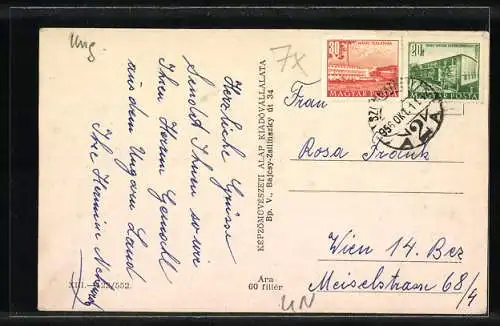 Ung.
7x
Herzliche Grüsse
Sendet Ihnen sowie
Ihren Herrn Gemahl
aus dem Ungarn Land
Ihre Hermine
KÉPZŐMŰVÉSZETI ALAP KIADÓVÁLLALATA
Bp. V., Bajcsy-Zsilinszky út 34
XIII.
Ára
60 fillér
UN
30
MAGYAR
20
POSTA
Frau
Rosa Frank
Wien 14. Bez
Meiselstrasse 68/4